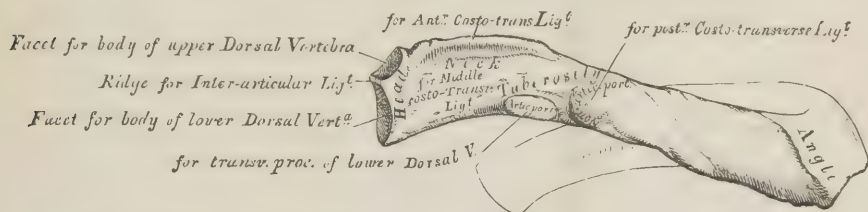 for Ant.r Costo-trans Lig.t
for post.r Costo-transverse Lig.t
Facet for body of upper Dorsal Vertebra
Ridge for Inter-articular Lig.t
Facet for body of lower Dorsal Vert.a
for transv. proc. of lower Dorsal V.
Head
Neck
for Middle
Costo-Transv.
Lig.t
Tuberosity
Artic. port.
Angle